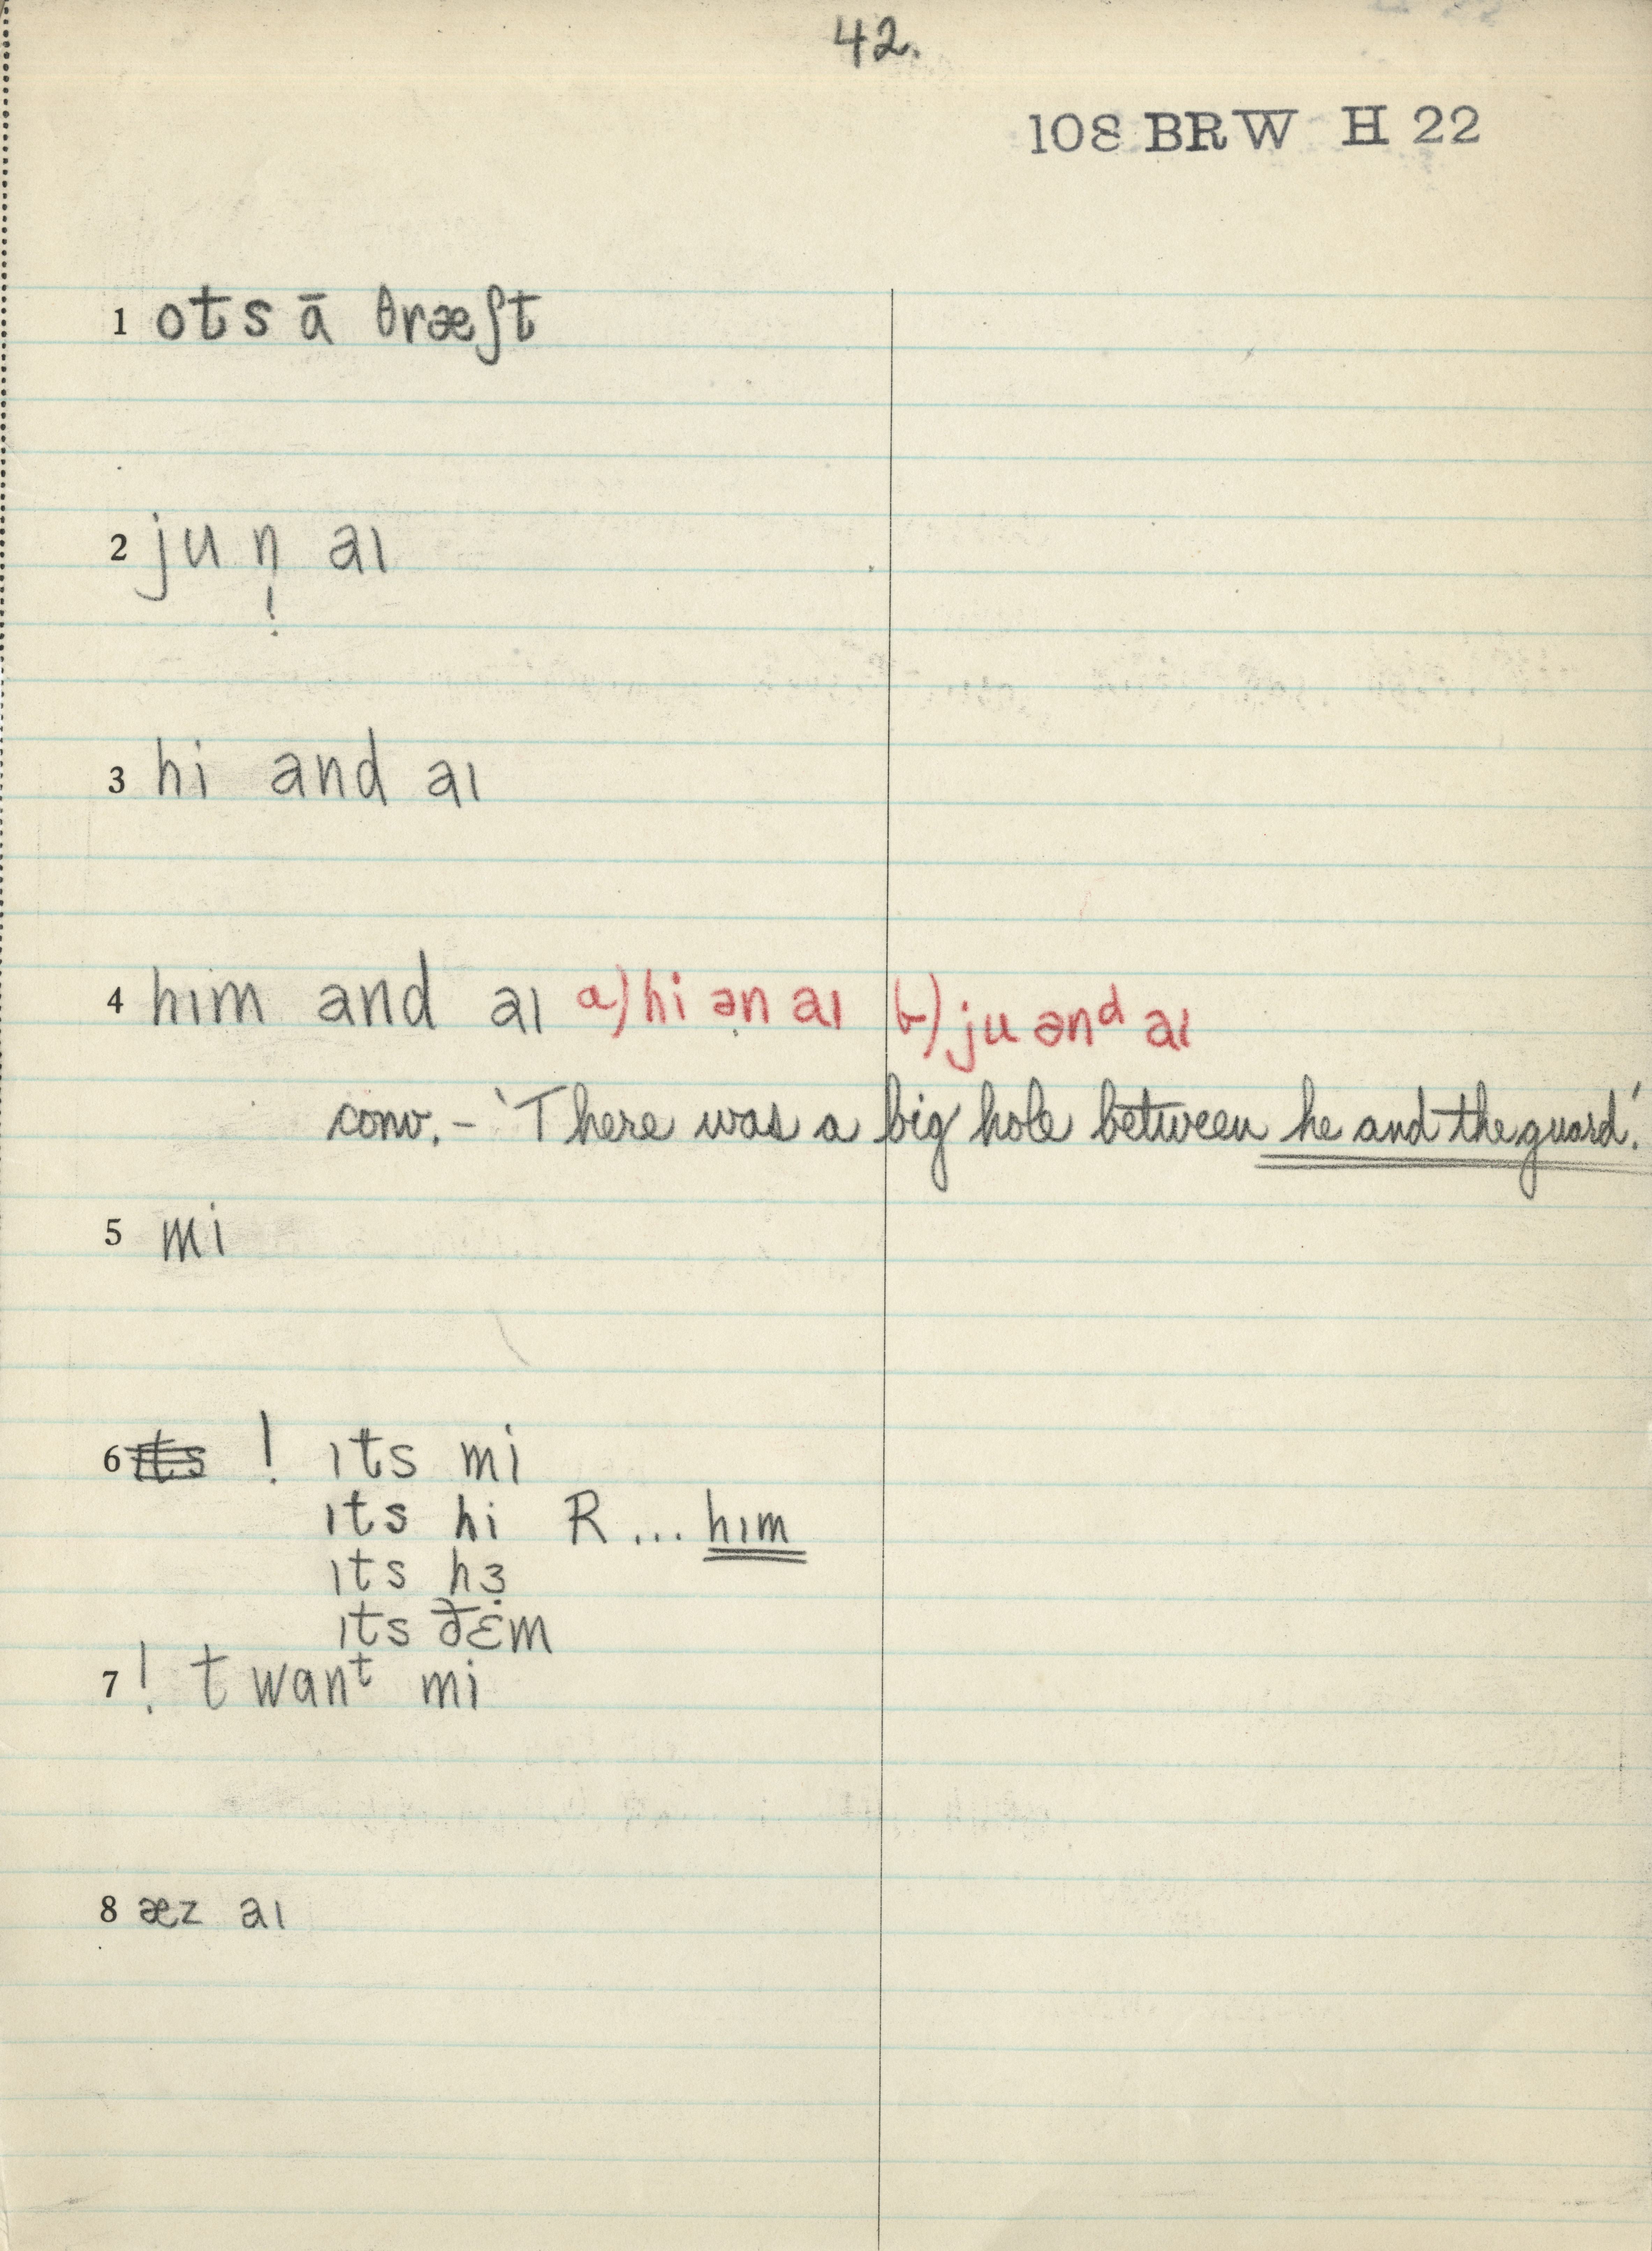 42.
108 BRW H 22
1 ots ā θræʃt
2 ju n̩ aɪ
!
3 hi and aɪ
4 hɪm and aɪ a) hi ən aɪ b) ju ənᵈ aɪ
conv. – 'There was a big hole between he and the guard.'
5 mi
6 ɪts ! ɪts mi
ɪts hi R ... hɪm
ɪts hɜ̣
ɪts ðɛ̣m
7 ! t wanᵗ mi
8 æz aɪ